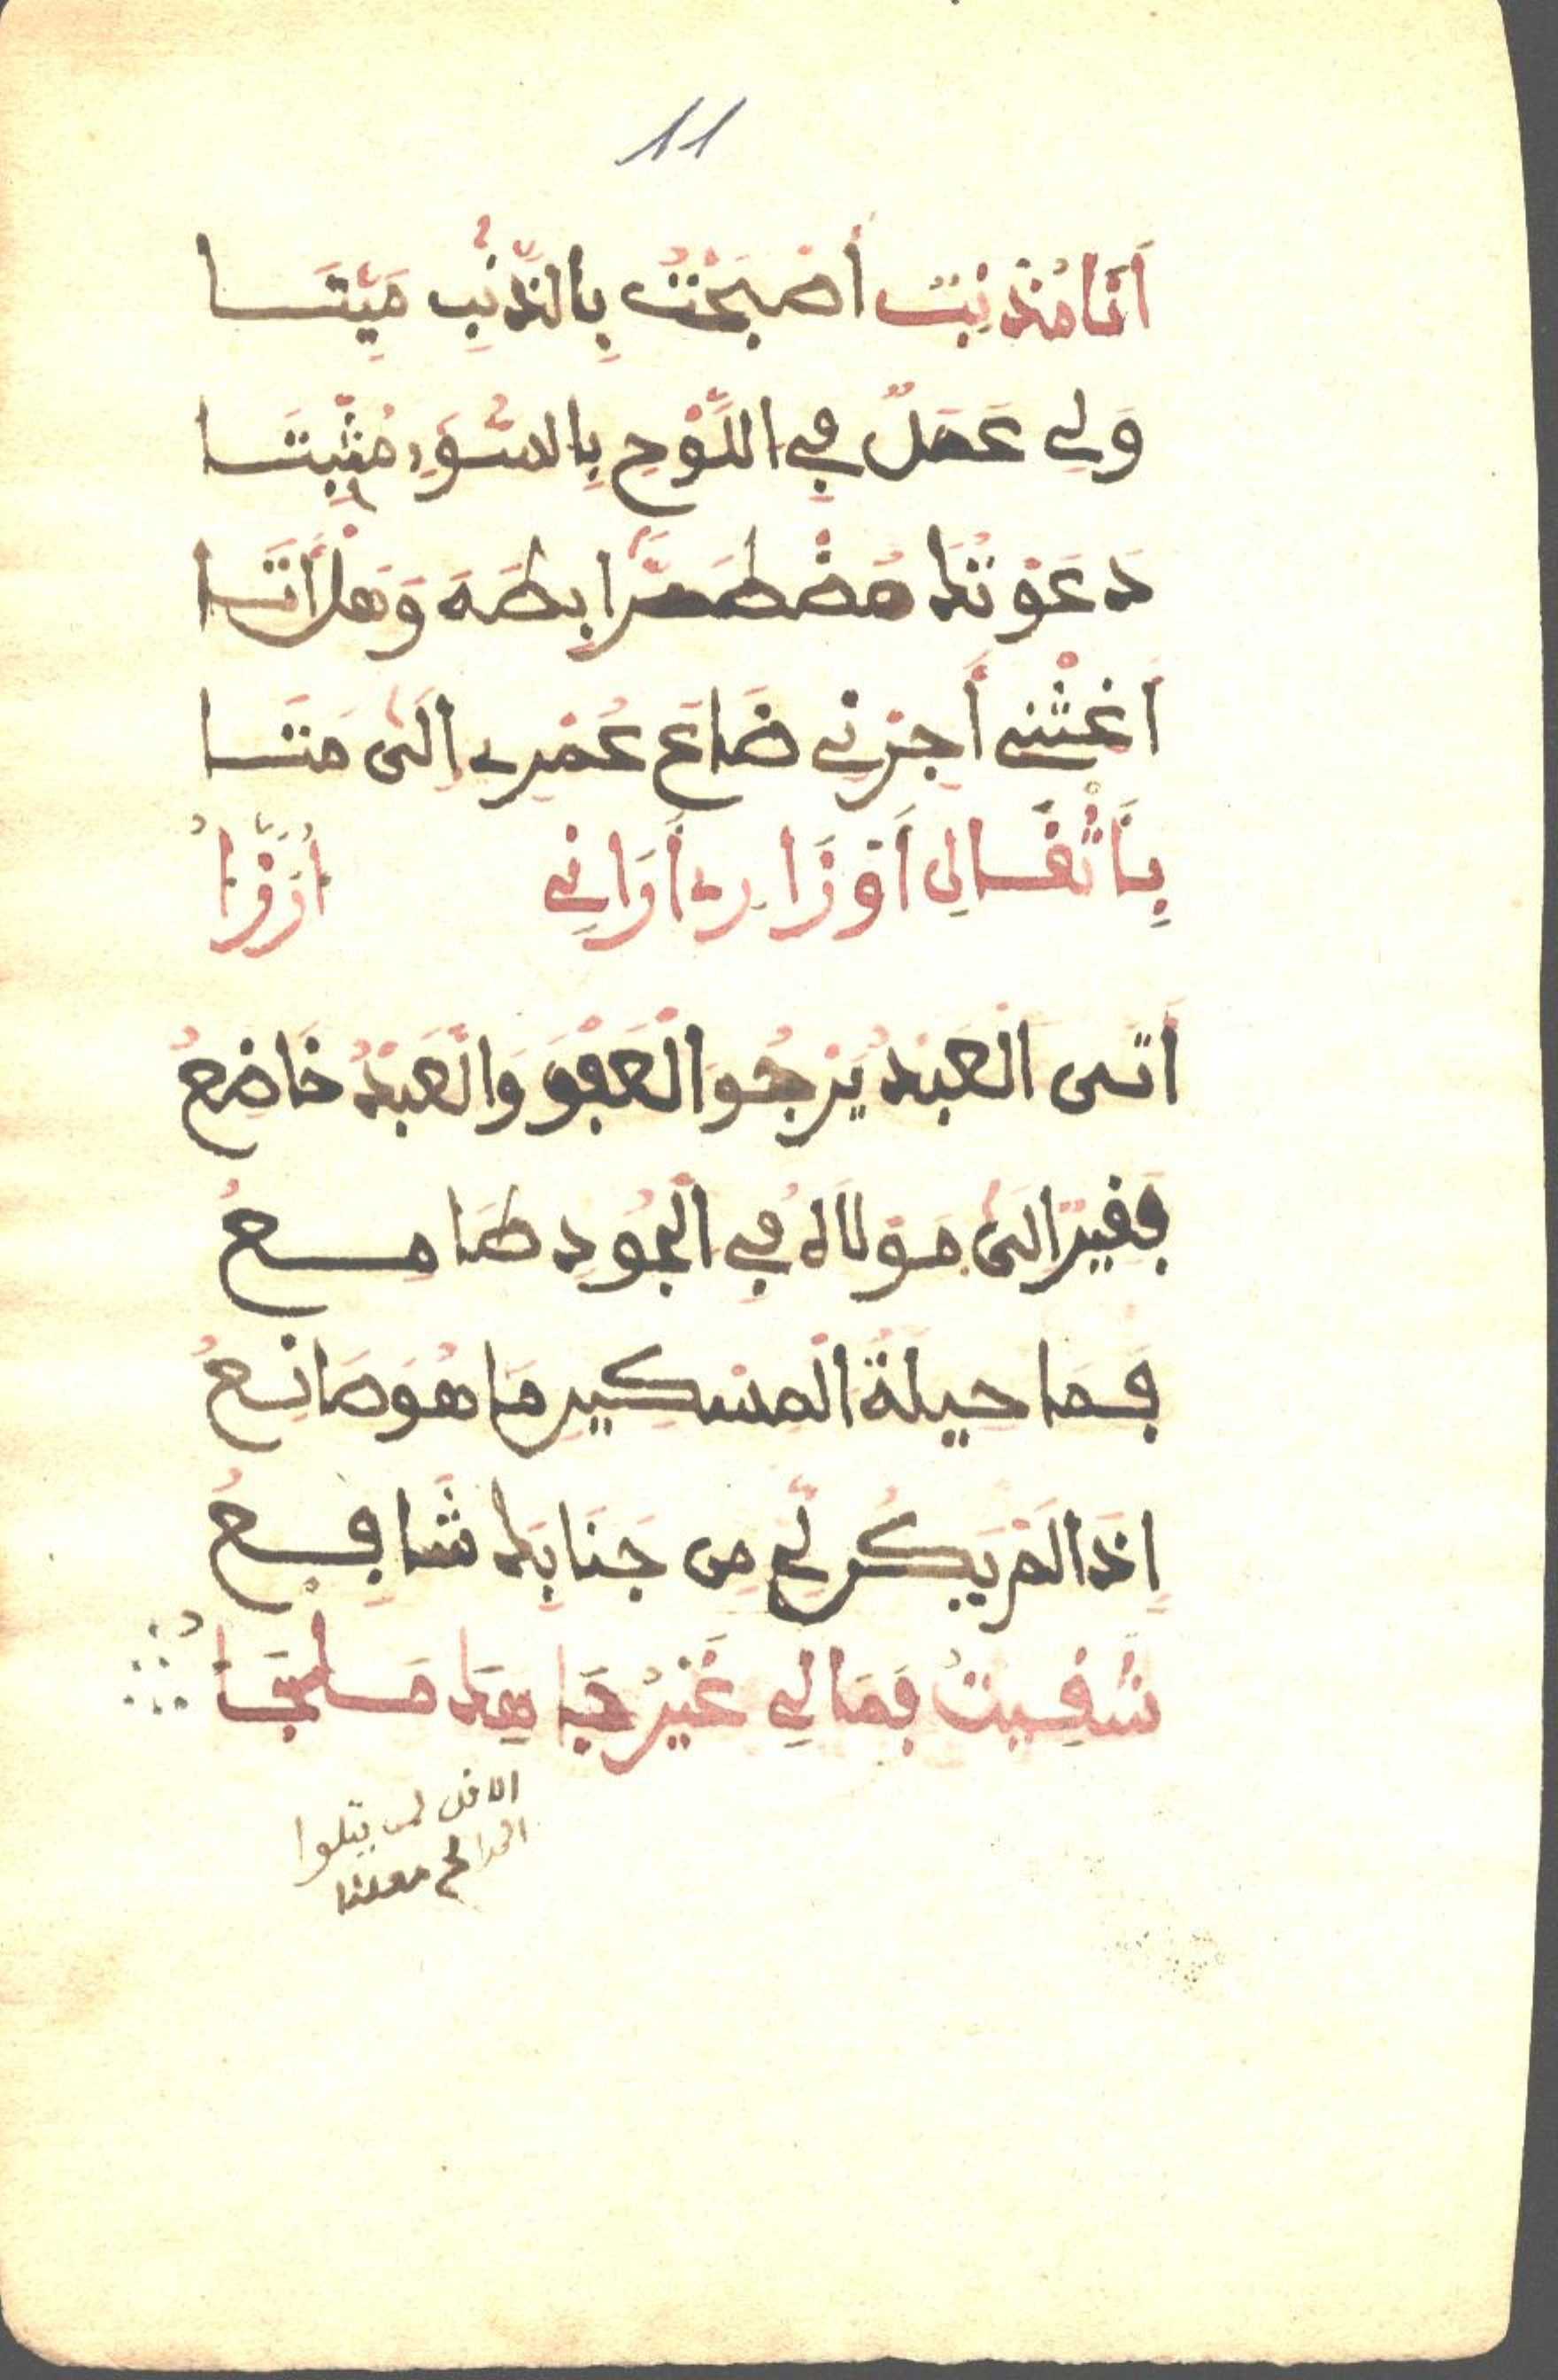 11
أَنَا مُذْنِبٌ أَصْبَحْتُ بِالذَّنْبِ مَيِّتَا
وَلِي عَمَلٌ فِي اللَّوْحِ بِالسُّوءِ مُثْبِتَا
دَعَوْتُكَ مُضْطَرًّا بِطَهَ وَهَلْ أَتَا
أَغِثْنِي أَجِرْنِي ضَاعَ عُمْرِي إِلَى مَتَا
بِأَثْقَالِ أَوْزَارِي أَرَانِي أُرَزَّأُ
أَتَى الْعَبْدُ يَرْجُو الْعَفْوَ وَالْعَبْدُ خَاضِعُ
فَقِيرٌ إِلَى مَوْلَاهُ فِي الْجُودِ طَامِعُ
فَمَا حِيلَةُ الْمِسْكِينِ مَا هُوَ صَانِعُ
إِذَا لَمْ يَكُن لِّي مِن جَنَابِكَ شَافِعُ
شَقِيتُ فَمَا لِي غَيْرُ جَاهِكَ مَلْجَأُ
الاذن لمن يتلوا